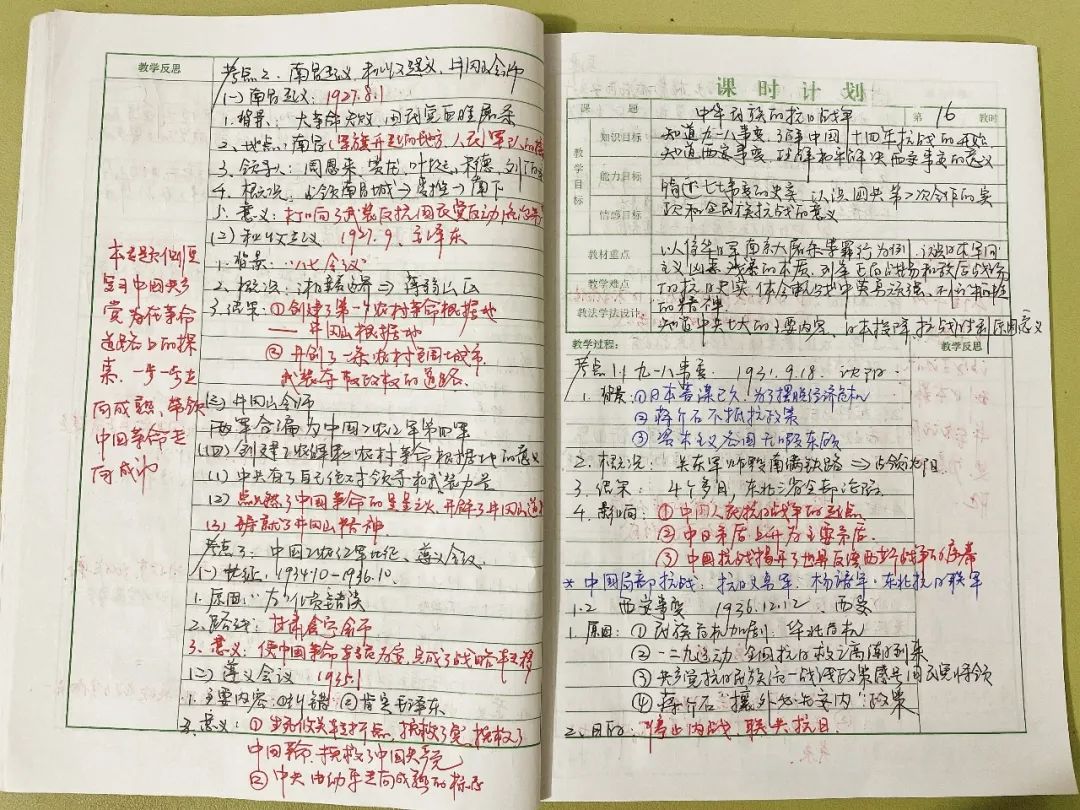 教学反思
考点2. 南昌起义、秋收起义、井冈山会师
(一) 南昌起义: 1927.8.1
1. 背景: 大革命失败 国民党血腥屠杀
2. 地点: 南昌(军旗升起的地方, 人民军队的
3. 领导人: 周恩来、贺龙、叶挺、朱德、刘伯承
4. 概况: 占领南昌城⇒ ⇒南下
5. 意义: 打响了武装反抗国民党反动统治第
(2) 秋收起义 1927.9、毛泽东
1. 背景: “八七会议”
2. 概况: 湘赣边界⇒
3. 结果: ①创建了第一个农村革命根据地
—— 井冈山根据地
② 开创了一条农村包围城市
武装夺取政权的道路.
(三) 井冈山会师
两军合编为中国工农红军第四军
(四) 创建工农红军和农村革命根据地的意义
(1) 中共有了自己绝对领导和武装力量
(2) 点燃了中国革命的星星之火, 开辟了井冈山道
(3) 铸就了井冈山精神
考点3: 中国工农红军长征、遵义会议
(一) 长征: 1934.10—1936.10.
1. 原因:
2. 路线: 甘肃会宁会师
3. 意义: 使中国革命转危为安, 完成了战略转移
(二) 遵义会议 1935.1
1. 主要内容: ①纠错 ②肯定毛泽东
2. 意义: ① 生死攸关转折点, 挽救了党、挽救了
中国革命、挽救了中国共产党
② 中共由幼年走向成熟的标志
本专题
复习中国共产
党为在革命
道路上的探
索, 一步一步走
向成熟, 带领
中国革命走
向成功
课时计划
课题
中华民族的抗日战争
第 16 教时
教学目标
知识目标:
知道九一八事变, 了解中国十四年抗战的开始
知道西安事变, 理解和平解决西安事变的意义
能力目标
简述七七事变的史实, 认识国共第二次合作的实
情感目标
现和全民族抗战的意义
教材重点
以侵华日军南京大屠杀等罪行为例, 认识日本军国
主义凶恶残暴的本质. 列举正面战场和敌后战场
教学难点
的抗日史实, 体会中国 英勇顽强、不 牺牲
的精神.
教法学法设计
知道中共七大的主要内容, 日本投降, 抗战胜利原因意义
教学过程:
教学反思
考点1: 1 九一八事变 1931.9.18. 沈阳
1. 背景: ①日本蓄谋已久, 为了摆脱经济危机
② 蒋介石不抵抗政策
③ 资本主义各国无暇东顾
2. 概况: 关东军炸毁南满铁路⇒占领沈阳
3. 结果: 4个多月, 东北三省全部沦陷.
4. 影响: ① 中国人民抗日战争的起点
② 中日矛盾上升为主要矛盾.
③ 中国抗战揭开了世界反法西斯战争的序幕
* 中国局部抗战: 抗日义勇军、杨靖宇·东北抗日联军
1.2 西安事变 1936.12.12 西安
1. 原因: ① 民族危机加剧: 华北危机
② 一二九运动, 全国抗日救亡高潮到来
③ 共产党抗日民族统一战线政策感召国民党将领
④ 蒋介石“攘外必先安内”政策
2. 目的: 停止内战、联共抗日